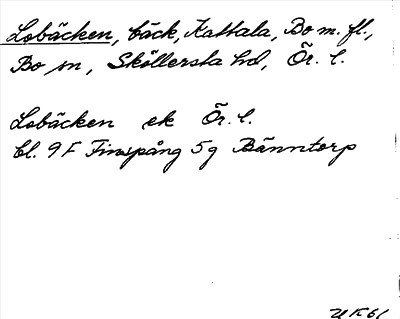 Lobäcken, bäck, Kattala, Bo m. fl.,
Bo sn, Sköllersta hd, Ör. l.
Lobäcken ek Ör. l.
bl. 9F Finspång 5g Bänntorp
UK 61